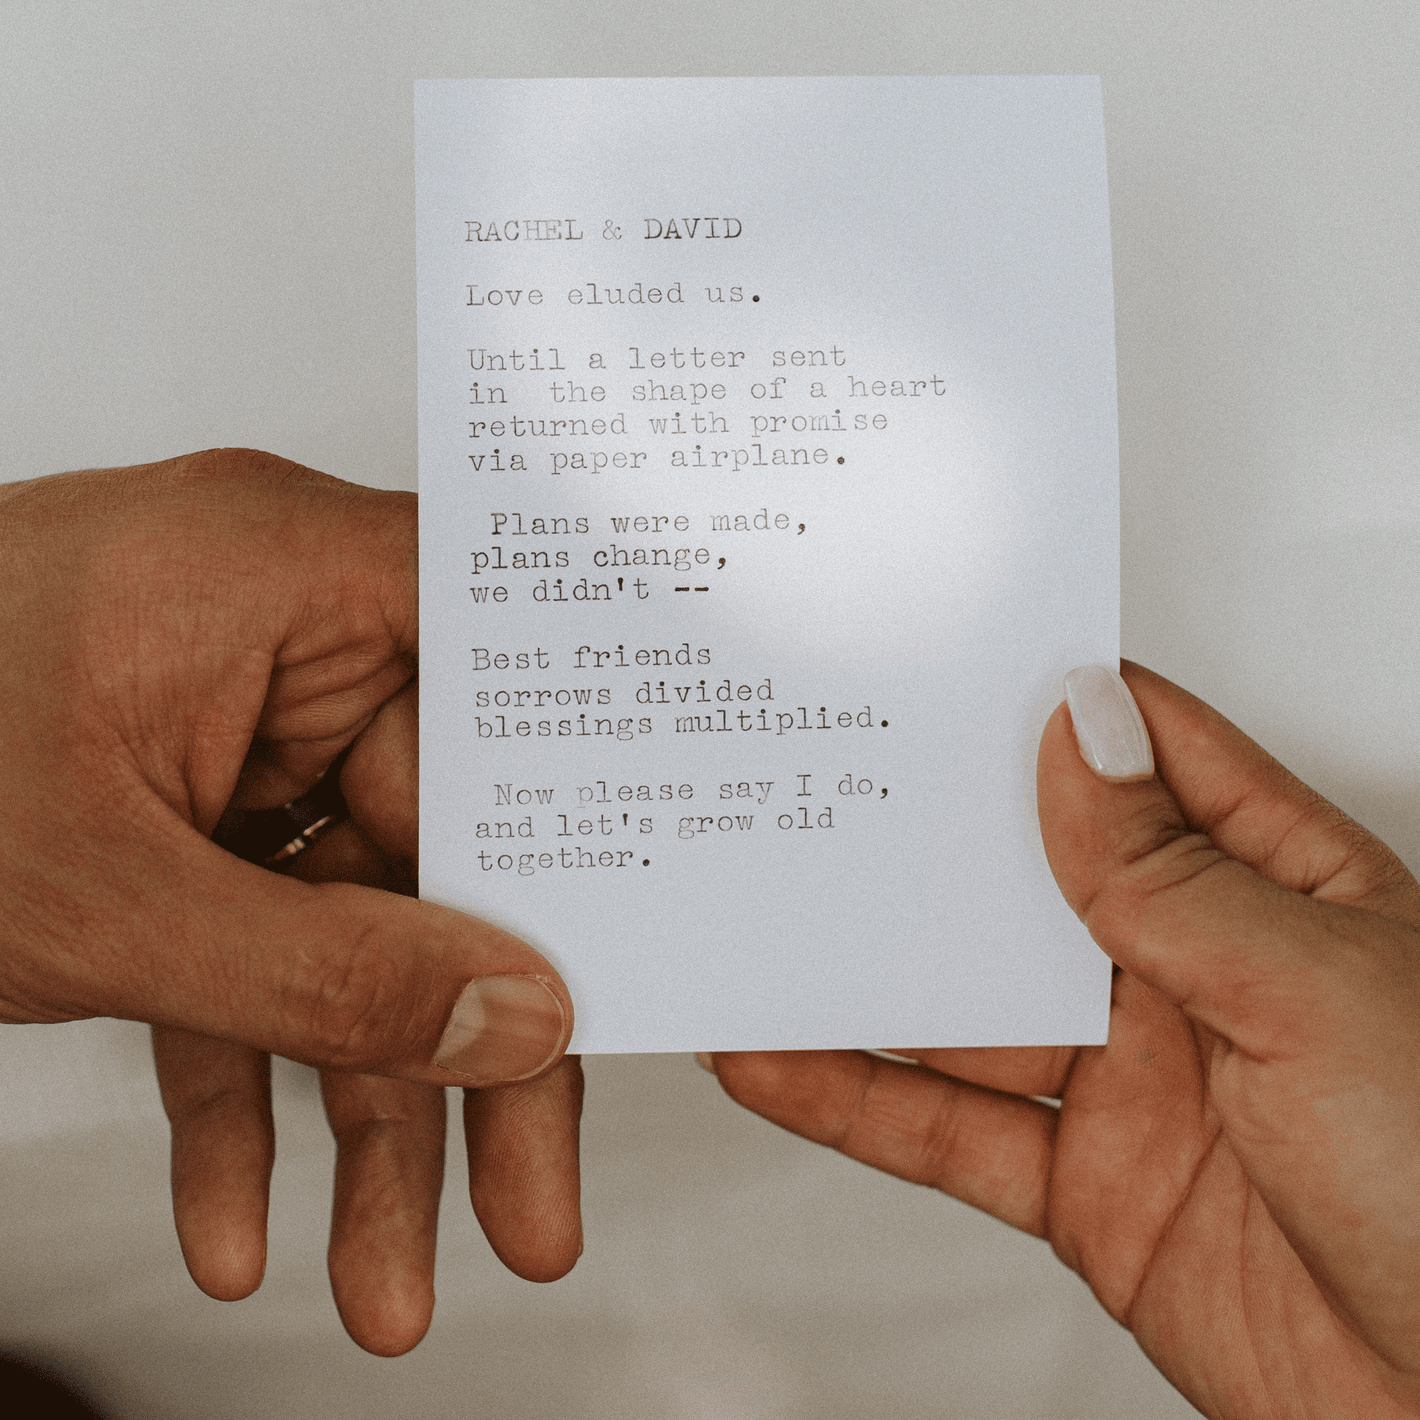 RACHEL & DAVID
Love eluded us.
Until a letter sent
in  the shape of a heart
returned with promise
via paper airplane.
Plans were made,
plans change,
we didn't --
Best friends
sorrows divided
blessings multiplied.
Now please say I do,
and let's grow old
together.